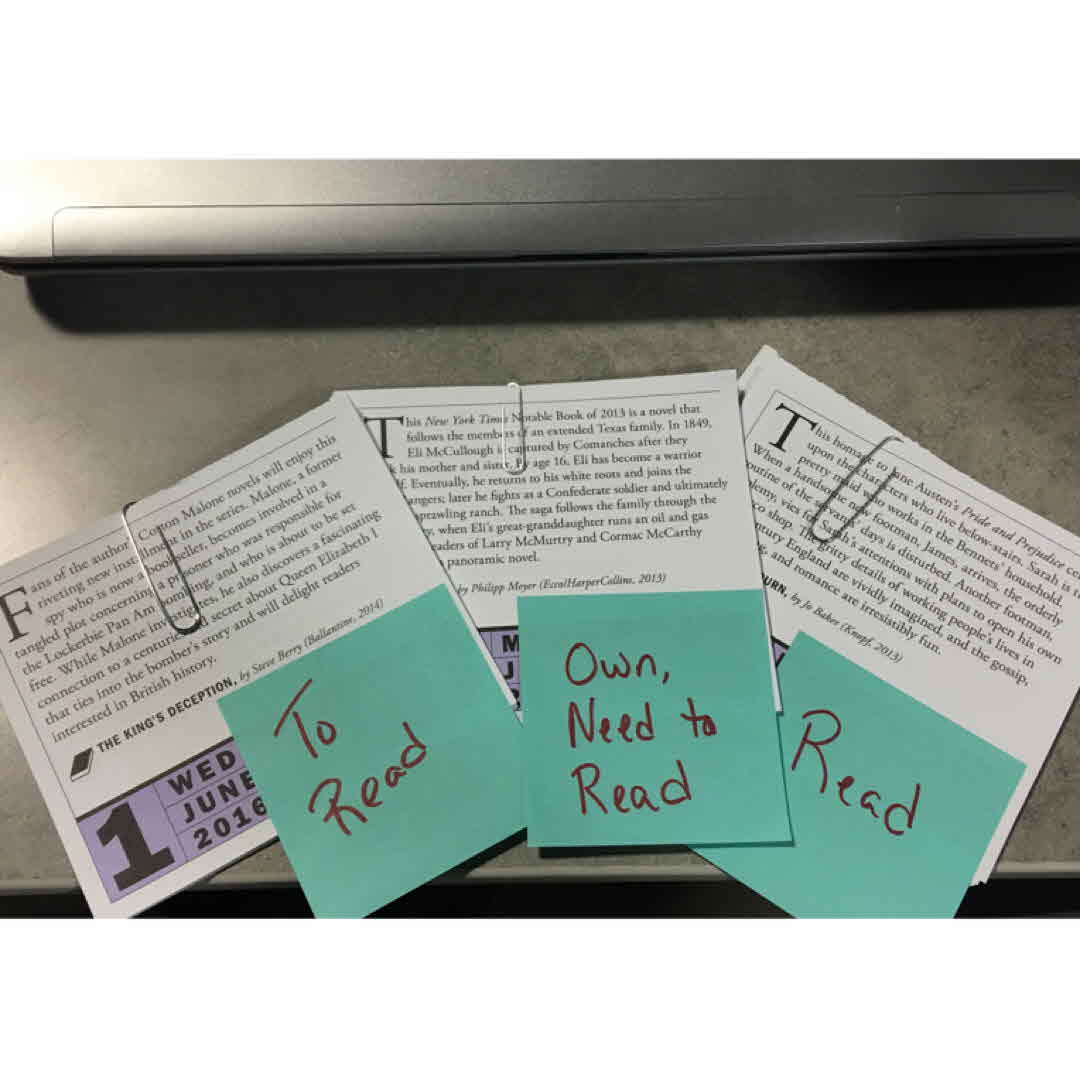 Fans of the author's Cotton Malone novels will enjoy this
riveting new installment in the series. Malone, a former
spy who is now a bookseller, becomes involved in a
tangled plot concerning a prisoner who was responsible for
the Lockerbie Pan Am bombing, and who is about to be set
free. While Malone investigates, he also discovers a fascinating
connection to a centuries-old secret about Queen Elizabeth I
that ties into the bomber's story and will delight readers
interested in British history.
THE KING'S DECEPTION, by Steve Berry (Ballantine, 2014)
1
WED
JUNE
2016
To
Read
This New York Times Notable Book of 2013 is a novel that
follows the members of an extended Texas family. In 1849,
Eli McCullough is captured by Comanches after they
his mother and sister. By age 16, Eli has become a warrior
Eventually, he returns to his white roots and joins the
angers; later he fights as a Confederate soldier and ultimately
prawling ranch. The saga follows the family through the
when Eli's great-granddaughter runs an oil and gas
eaders of Larry McMurtry and Cormac McCarthy
panoramic novel.
by Philipp Meyer (Ecco/HarperCollins, 2013)
M
J
Own,
Need to
Read
This homage to Jane Austen's Pride and Prejudice
upon the characters who live below-stairs. Sarah is
pretty maid who works in the Bennets' household.
When a handsome new footman, James, arrives, the orderly
outine of the servants' days is disturbed. Another footman,
lemy, vies for Sarah's attentions with plans to open his own
co shop. The gritty details of working people's lives in
ntury England are vividly imagined, and the gossip,
and romance are irresistibly fun.
URN, by Jo Baker (Knopf, 2013)
Read